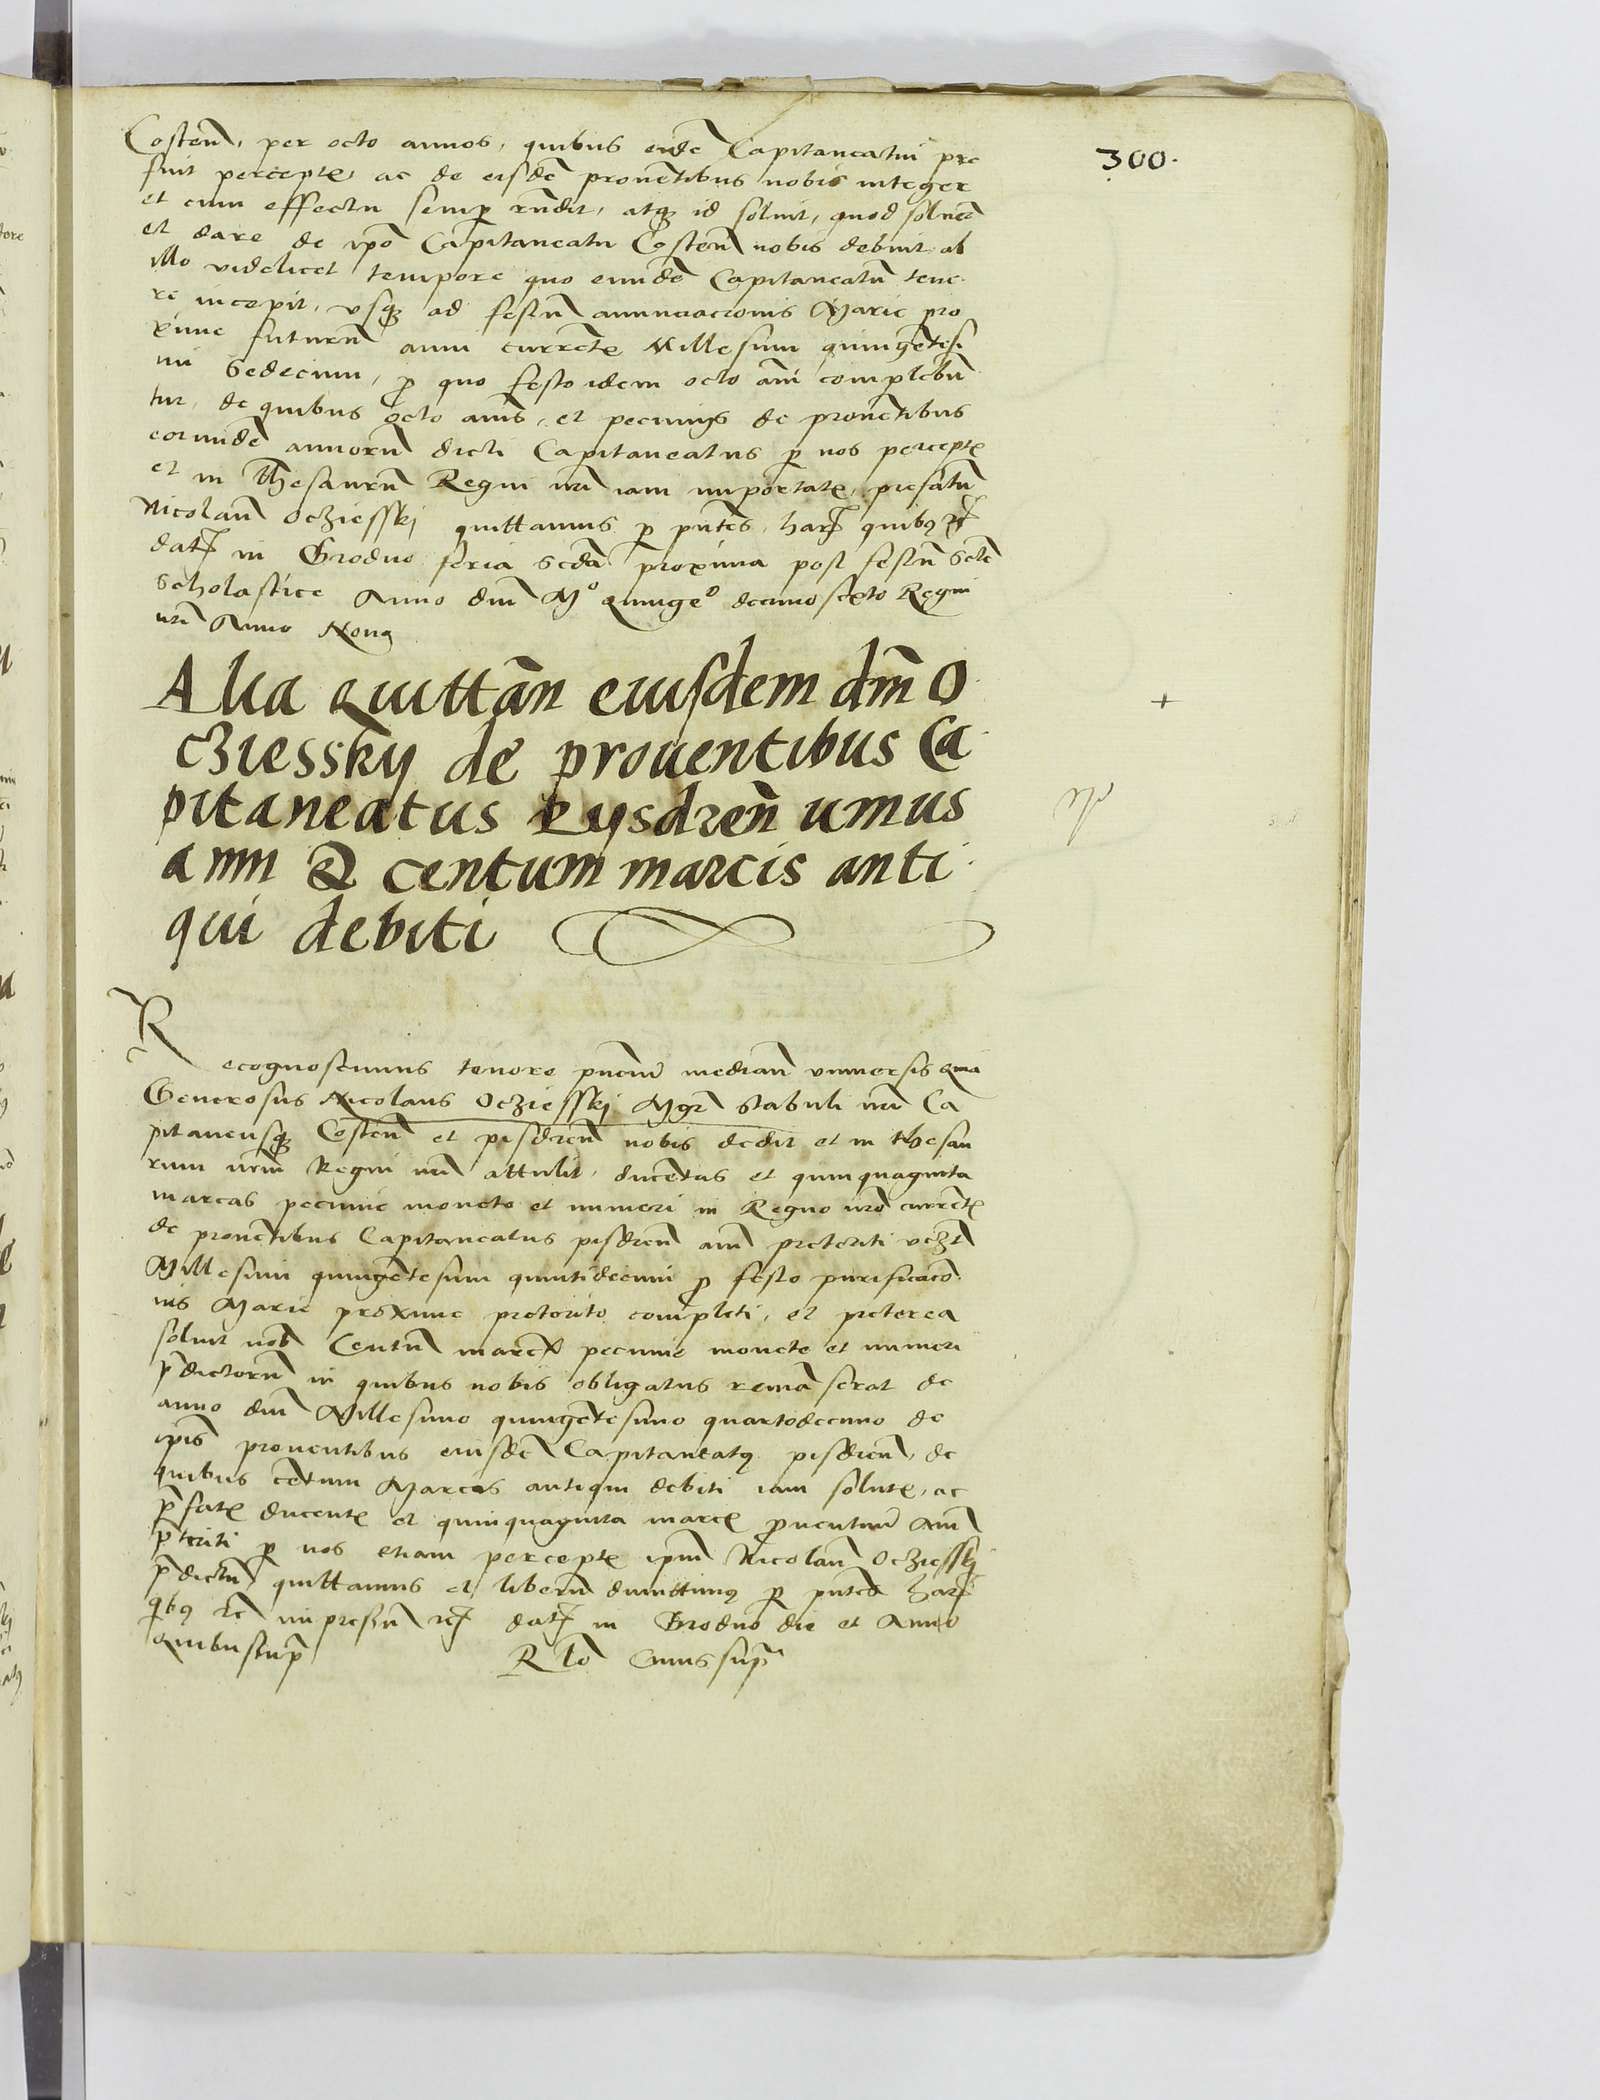 300.
Costen̄, per octo annos, quibus eidē Capitaneatui pre
fuit percepte, ac de eisdē proventibus nobis integer
et cum effectu semꝑ rñdit, atqꝫ id soluit, quod soluere
et dare de ipō Capitaneatu Costen̄ nobis debuit ab
illo videlicet tempore quo eundē Capitaneatū tene
re incepit, vsqꝫ ad festū annunciacionis Marie pro
xime futurū anni currēte Millesimi quingētesi
mi Sedecimi, ꝓ quo festo idem octo añi complebū
tur, de quibus octo añis, et pecuniis de prouētibus
eorundē annorū dicti Capitaneatus ꝑ nos percepte
et in Thesaurū Regni nr̄i iam importate, prefatū
Nicolaū Ocziesskj quittamus ꝑ pn̄tes, harꝫ quibꝰ
datꝫ in Grodno feria Scđa proxima post festū Scte
Scholastice Anno dnī Mº Quingeº decimosexto Regni
nr̄i Anno Nono
Alia Quittan̄ eiusdem dn̄i O
cziessky de prouentibus Ca
pitaneatus Pysdren̄ unius
anni & centum marcis anti
qui debiti
Recognoscimus tenore pn̄cium median̄ vniuersis Quia
Generosus Nicolaus Oczieskj Mgr̄ Stabuli nr̄i Ca
pitaneusqꝫ Costen̄ et pisdren̄ nobis dedit et in thesau
rum nr̄m Regni nr̄i attulit, ducētas et quinquaginta
marcas pecunie monete et numeri in Regno nr̄o currēte
de prouētibus Capitaneatus pisdren̄ añi preteriti vcꝫt
Millesimi quingētesimi quintidecimi ꝓ festo purificacō
nis Marie proxime preterito completi, et preterea
soluit nob̄ Centū marcas pecunie monete et numeri
p̄dictorū in quibus nobis obligatus remāserat de
anno dnī Millesimo quingētesimo quartodecimo de
ipīs prouentibus eiusdē Capitaneatꝰ pisdren̄, de
quibus cētum Marcis antiqui debiti iam solute, ac
p̄fate ducente et quinquaginta marce ꝓuentuū añi
p̄teriti ꝑ nos etiam percepte ipm̄ Nicolaū Oczieskj
p̄dictū quittamus et liberū dimittimꝰ ꝑ pn̄tes harꝫ
qͥbꝰ im presm̄ datꝫ in Grodno die et Anno
Quibus supͣ Rlō Cuius supͣ